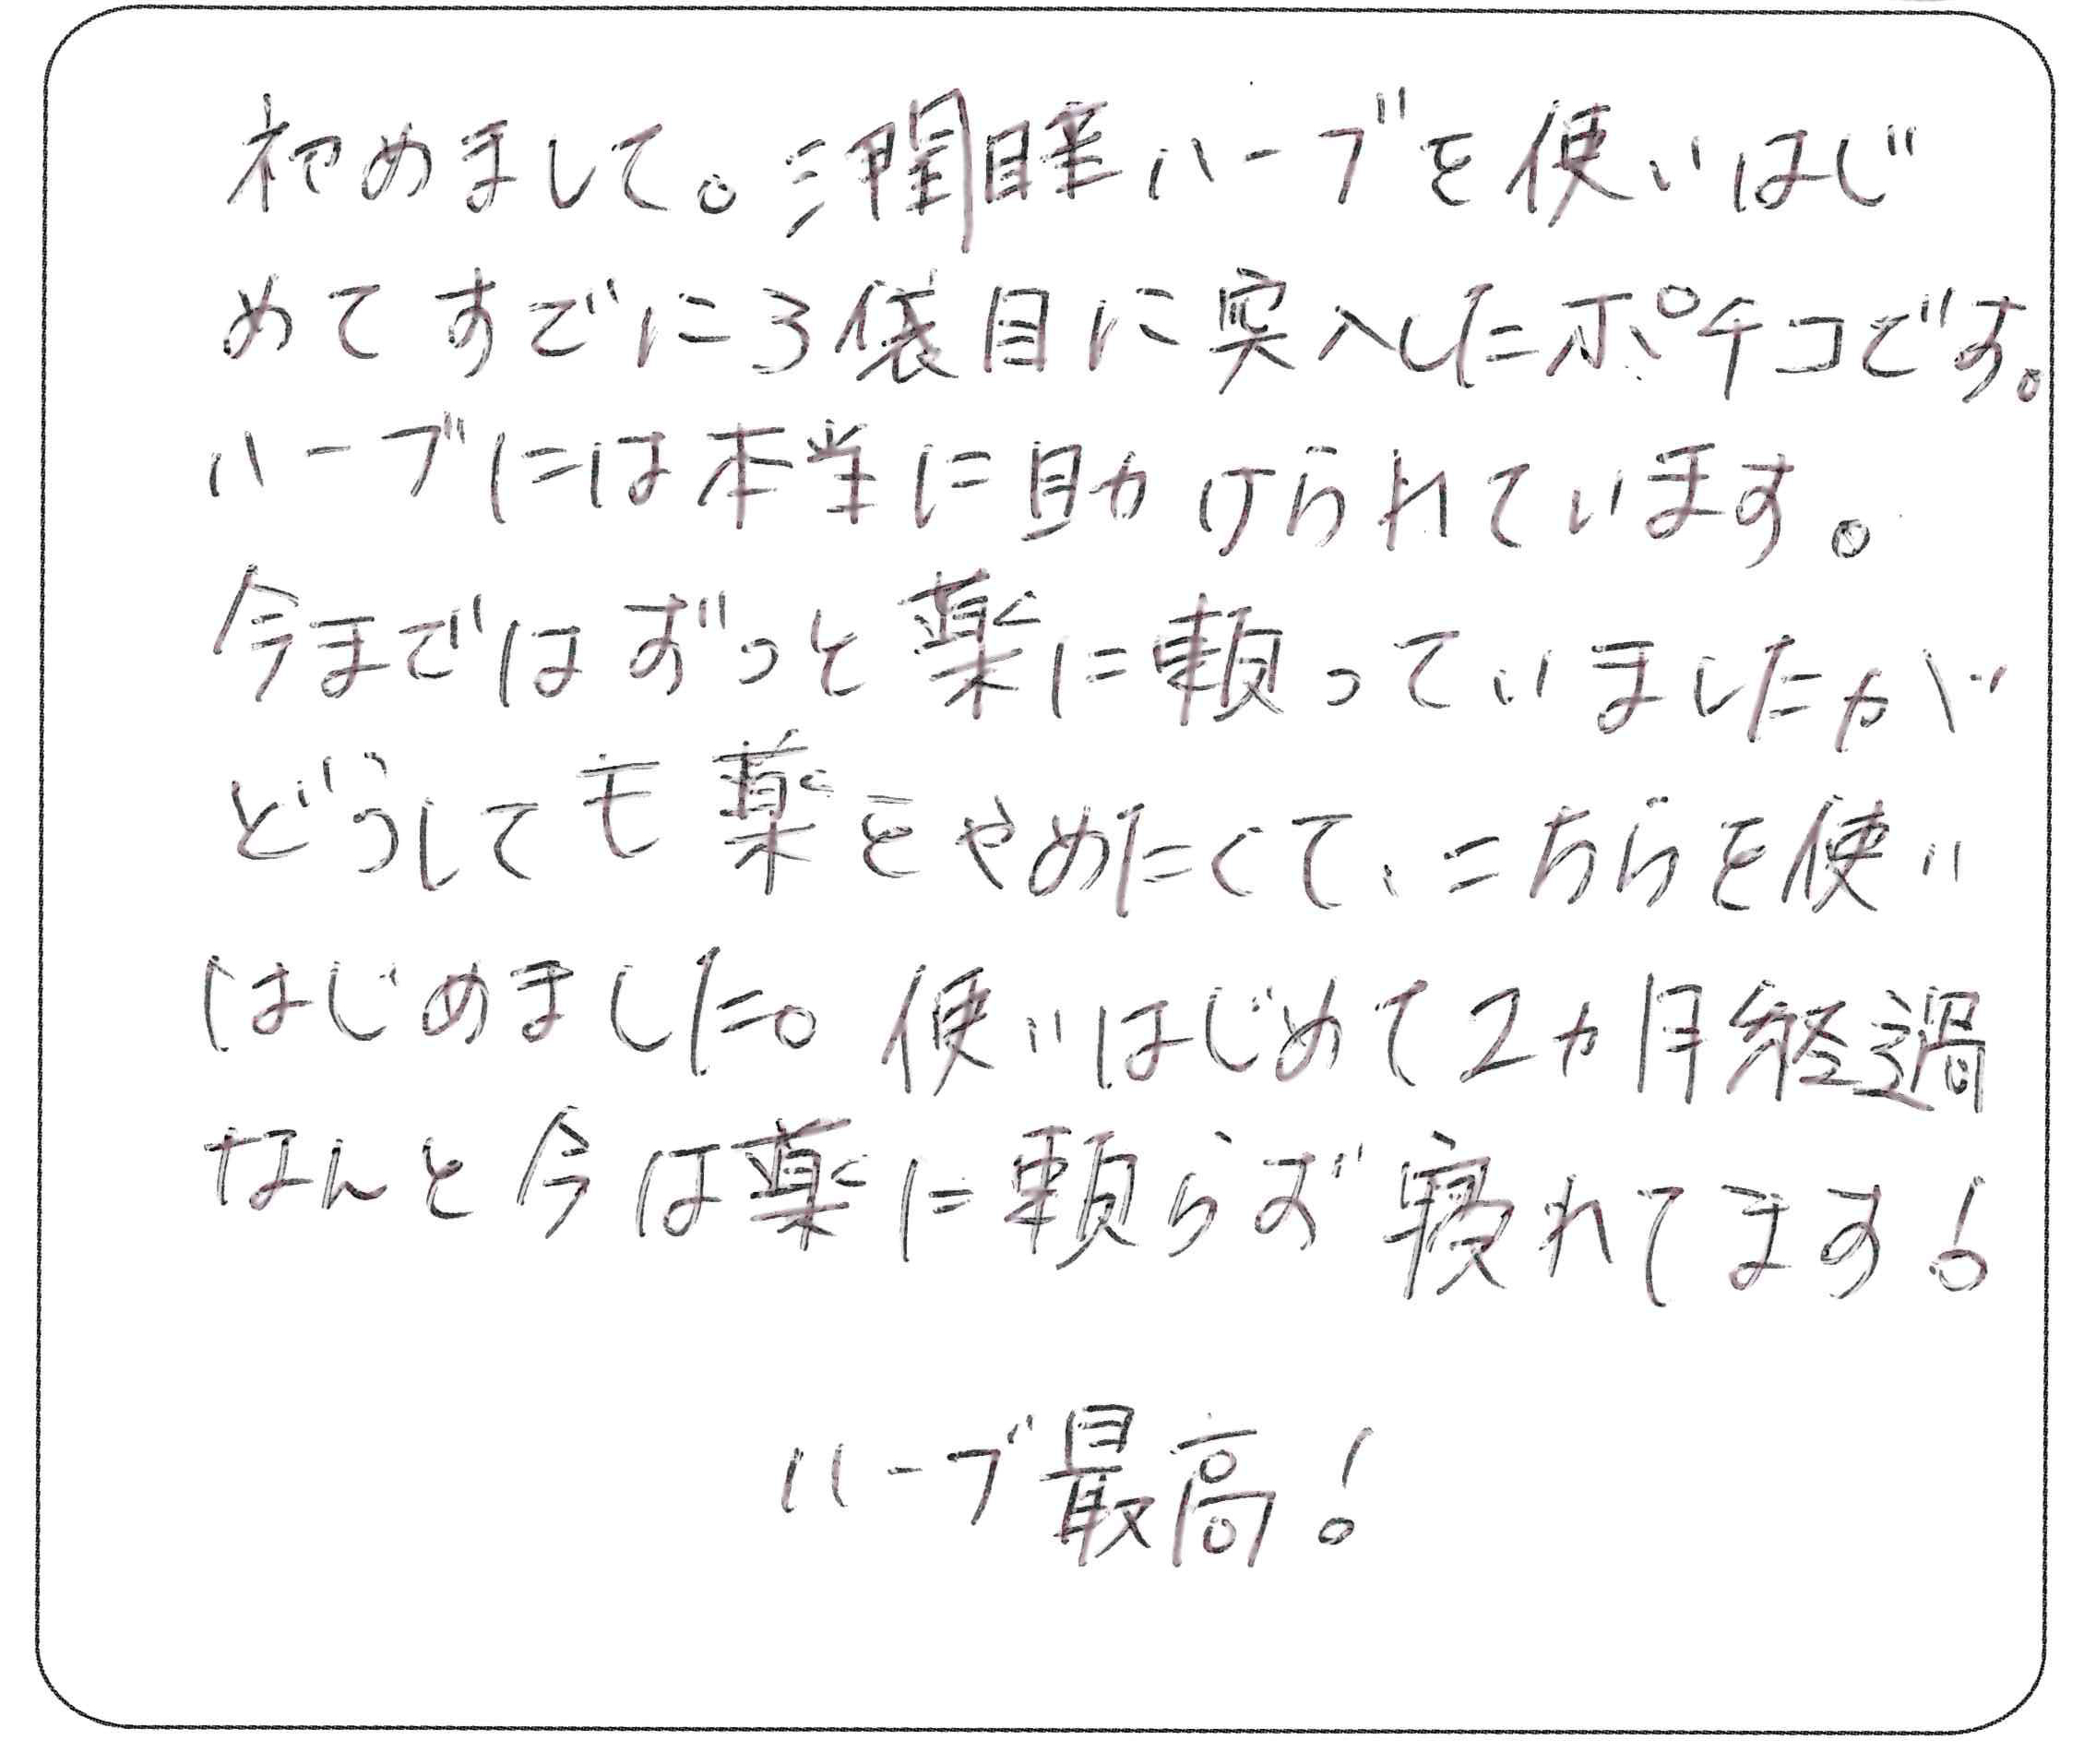 初めまして。潤睡ハーブを使いはじ
めてすでに3袋目に突入したポチコです。
ハーブには本当に助けられています。
今まではずっと薬に頼っていましたが
どうしても薬をやめたくて、こちらを使い
はじめました。使いはじめて2カ月経過
なんと今は薬に頼らず寝れてます!
ハーブ最高!